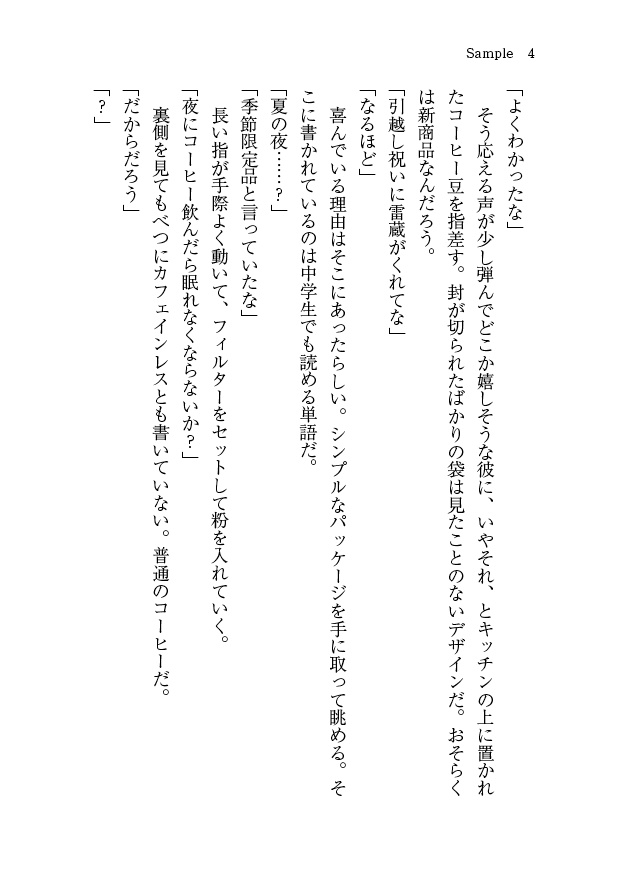 Sample 4
「よくわかったな」
　そう応える声が少し弾んでどこか嬉しそうな彼に、いやそれ、とキッチンの上に置かれ
たコーヒー豆を指差す。封が切られたばかりの袋は見たことのないデザインだ。おそらく
は新商品なんだろう。
「引越し祝いに雷蔵がくれてな」
「なるほど」
　喜んでいる理由はそこにあったらしい。シンプルなパッケージを手に取って眺める。そ
こに書かれているのは中学生でも読める単語だ。
「夏の夜……?」
「季節限定品と言っていたな」
　長い指が手際よく動いて、フィルターをセットして粉を入れていく。
「夜にコーヒー飲んだら眠れなくならないか?」
　裏側を見てもべつにカフェインレスとも書いていない。普通のコーヒーだ。
「だからだろう」
「?」